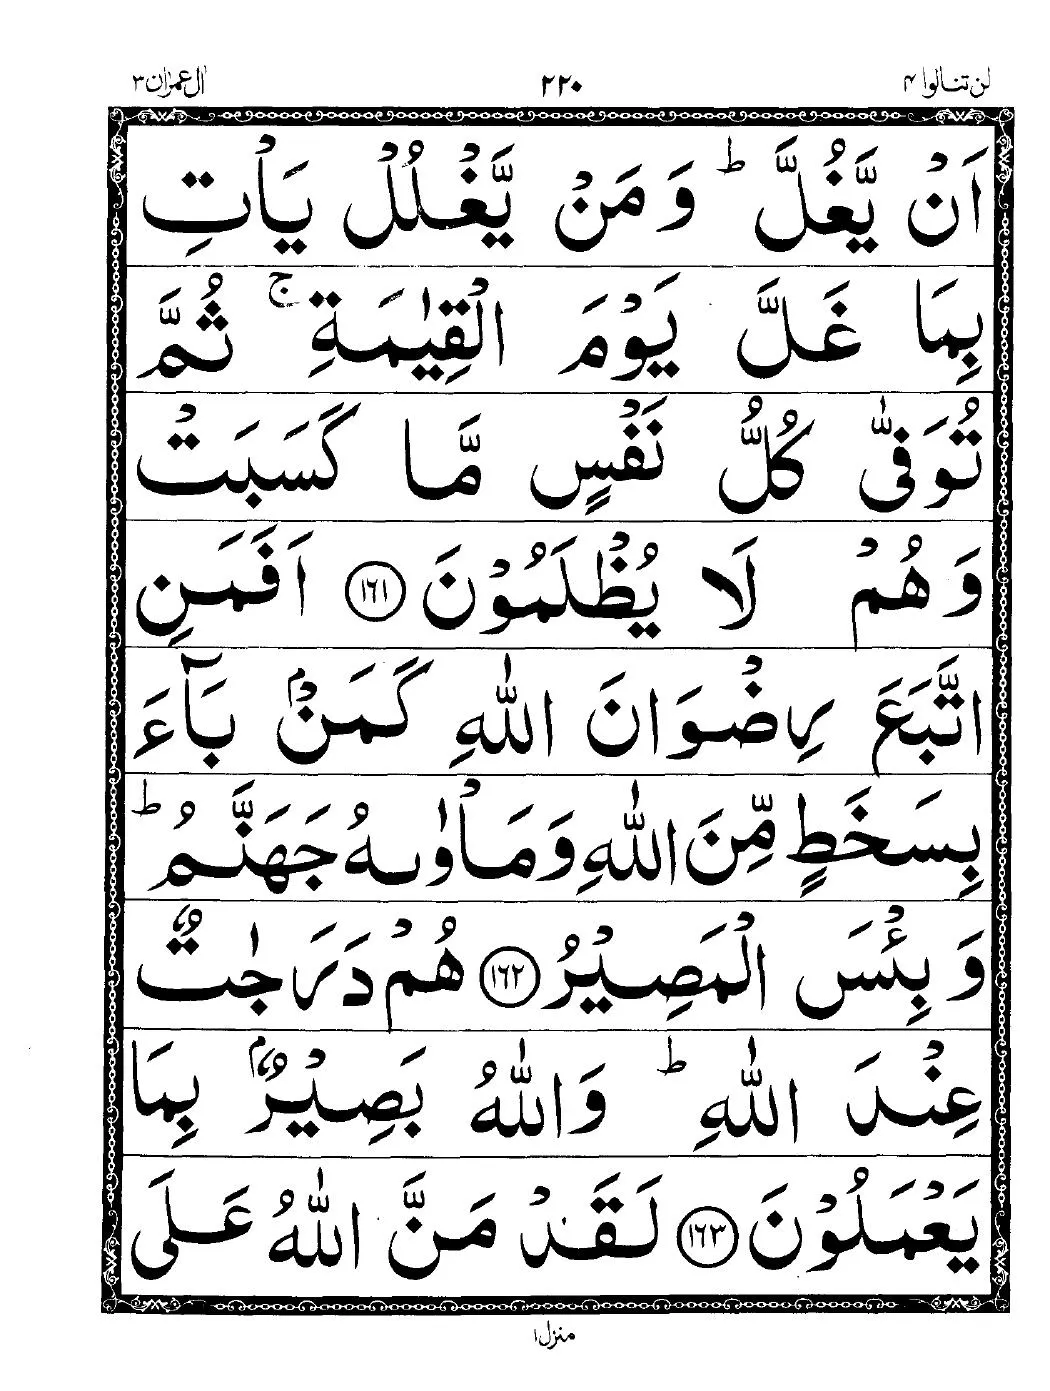 لن تنالوا ۴ ۲۲۰ اٰل عمرٰن ۳
اَنْ يَّغُلَّ ؕ وَمَنْ يَّغْلُلْ يَاْتِ
بِمَا غَلَّ يَوْمَ الْقِيٰمَةِ ۚ ثُمَّ
تُوَفّٰى كُلُّ نَفْسٍ مَّا كَسَبَتْ
وَهُمْ لَا يُظْلَمُوْنَ ﴿۱۶۱﴾ اَفَمَنِ
اتَّبَعَ رِضْوَانَ اللّٰهِ كَمَنْۢ بَآءَ
بِسَخَطٍ مِّنَ اللّٰهِ وَمَاْوٰىهُ جَهَنَّمُ ؕ
وَبِئْسَ الْمَصِيْرُ ﴿۱۶۲﴾ هُمْ دَرَجٰتٌ
عِنْدَ اللّٰهِ ؕ وَاللّٰهُ بَصِيْرٌۢ بِمَا
يَعْمَلُوْنَ ﴿۱۶۳﴾ لَقَدْ مَنَّ اللّٰهُ عَلَى
منزل ۱